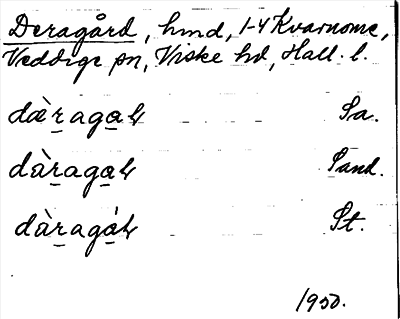 Deragård, hmd, 1-4 Kvarnome,
Veddige sn, Viske hd, Hall. l.
dæ̀ragaↄ Sa.
dàragaↄ Sand.
dàragáↄ St.
1950.